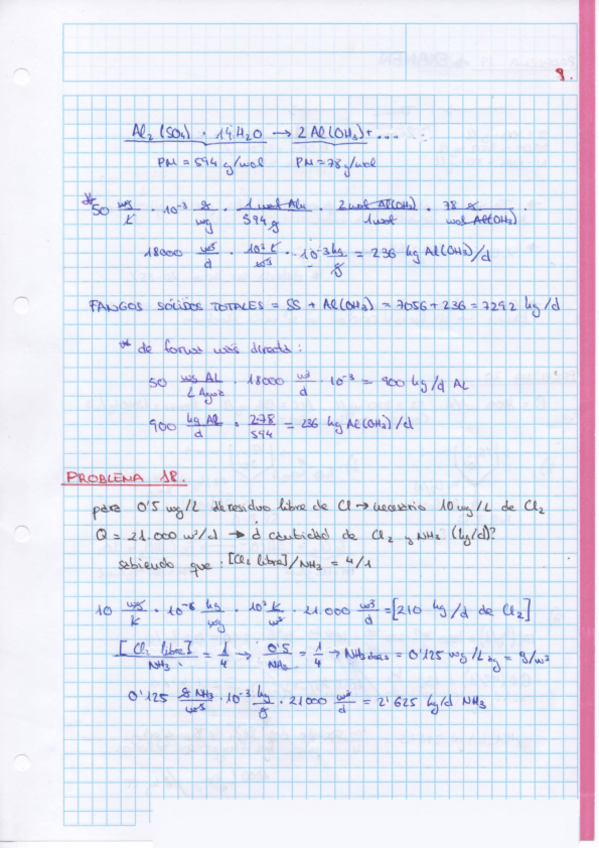 9.
Al₂(SO₄) · 14H₂O → 2 Al(OH₃) + ...
PM = 594 g/mol PM = 78 g/mol
* 50 mg/L · 10⁻³ g/mg · 1 mol Alu/594 g · 2 mol Al(OH₃)/1 mol · 78 g/mol Al(OH₃) ·
18000 m³/d · 10³ L/m³ · 10⁻³ kg/g = 236 kg Al(OH₃)/d
FANGOS SÓLIDOS TOTALES = SS + Al(OH₃) = 7056 + 236 = 7292 kg/d
* de forma más directa:
50 mg AL/L Agua · 18000 m³/d · 10⁻³ = 900 kg/d AL
900 kg Al/d · 2·78/594 = 236 kg Al(OH₃)/d
PROBLEMA 18.
para 0'5 mg/L de residuo libre de Cl → necesario 10 mg/L de Cl₂
Q = 21.000 m³/d → d cantidad de Cl₂ y NH₃ (kg/d)?
sabiendo que: [Cl₂ libre]/NH₃ = 4/1
10 mg/L · 10⁻⁶ kg/mg · 10³ L/m³ · 21.000 m³/d = [210 kg/d de Cl₂]
[Cl₂ libre]/NH₃ = 1/4 → 0'5/NH₃ = 1/4 → NH₃ = 0'125 mg/L = g/m³
0'125 g NH₃/m³ · 10⁻³ kg/g · 21000 m³/d = 2'625 kg/d NH₃